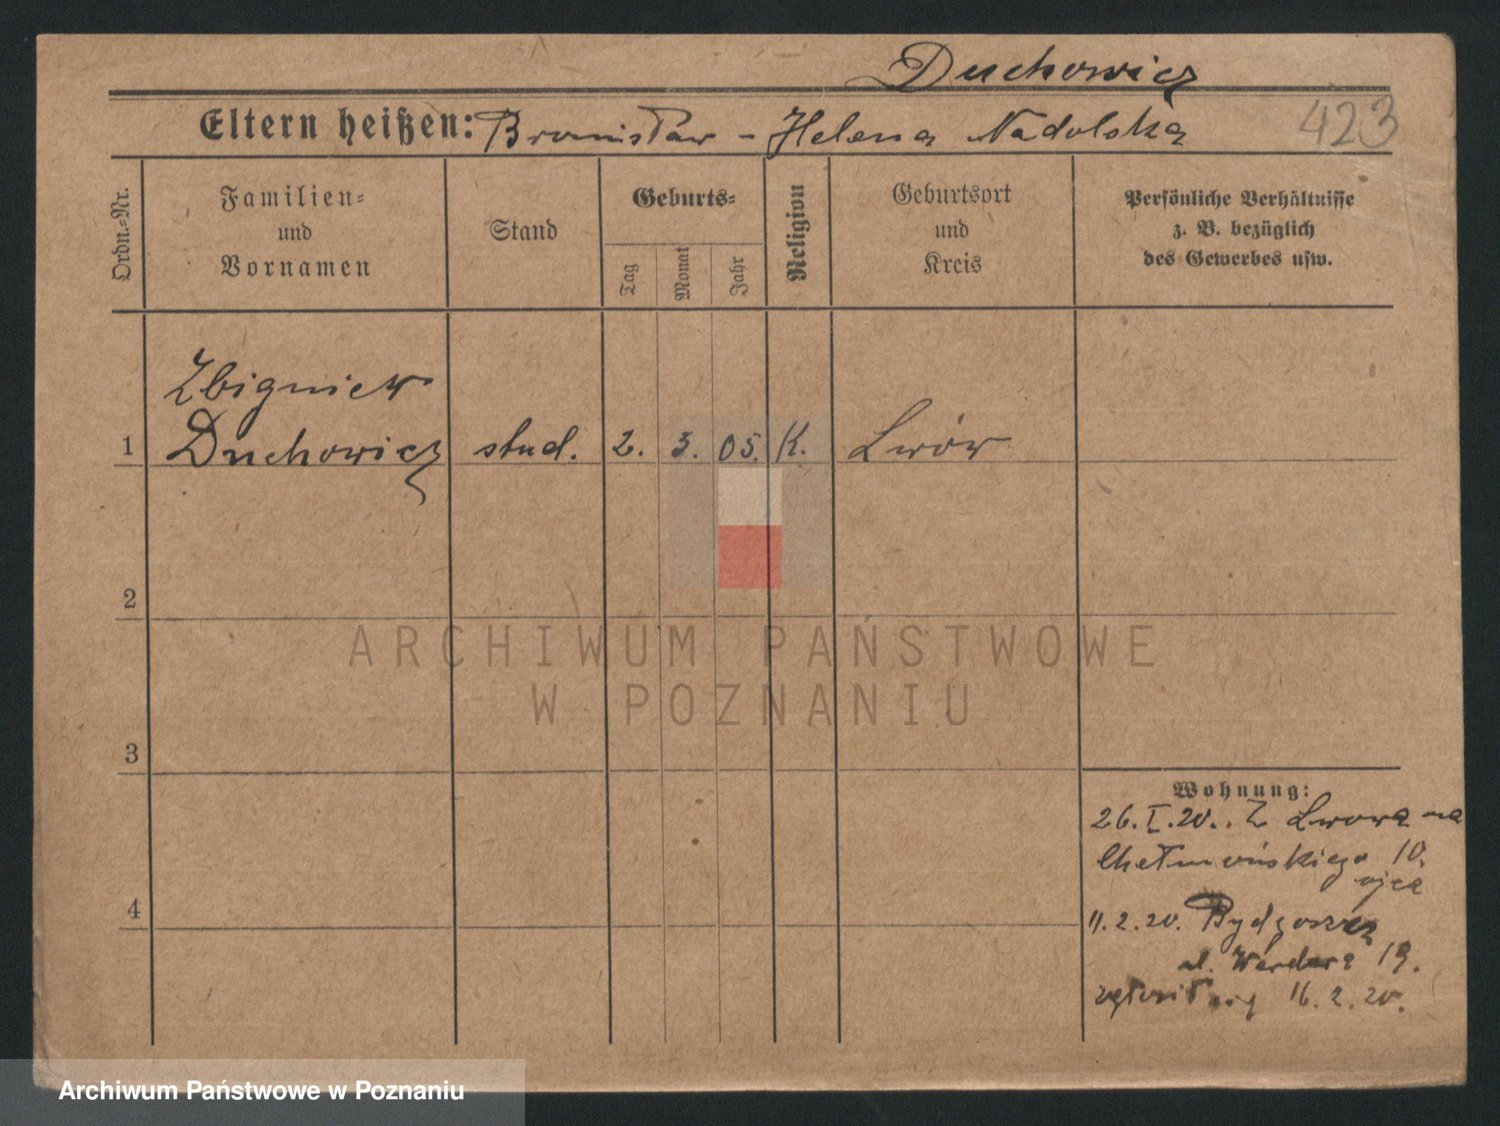 Duchowicz
Eltern heißen: Bronisław - Helena Nadolska
423
Ordn.-Nr.
Familien-
und
Vornamen
Stand
Geburts-
Tag
Monat
Jahr
Religion
Geburtsort
und
Kreis
Persönliche Verhältnisse
z. B. bezüglich
des Gewerbes usw.
Zbigniew
1 Duchowicz stud. 2. 3. 05. K. Lwów
2
ARCHIWUM PAŃSTWOWE
W POZNANIU
3
Wohnung:
26.I.20. Z Lwowa na
Chełmońskiego 10.
ojca
4
11.2.20. Bydgoszcz
ul. Werdera 19.
zgłosił się 16.2.20.
Archiwum Państwowe w Poznaniu